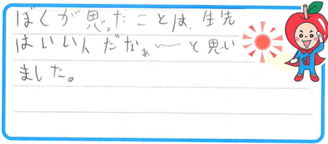 ぼくが思ったことは、生先
はいいんだなぁ〜と思い
ました。